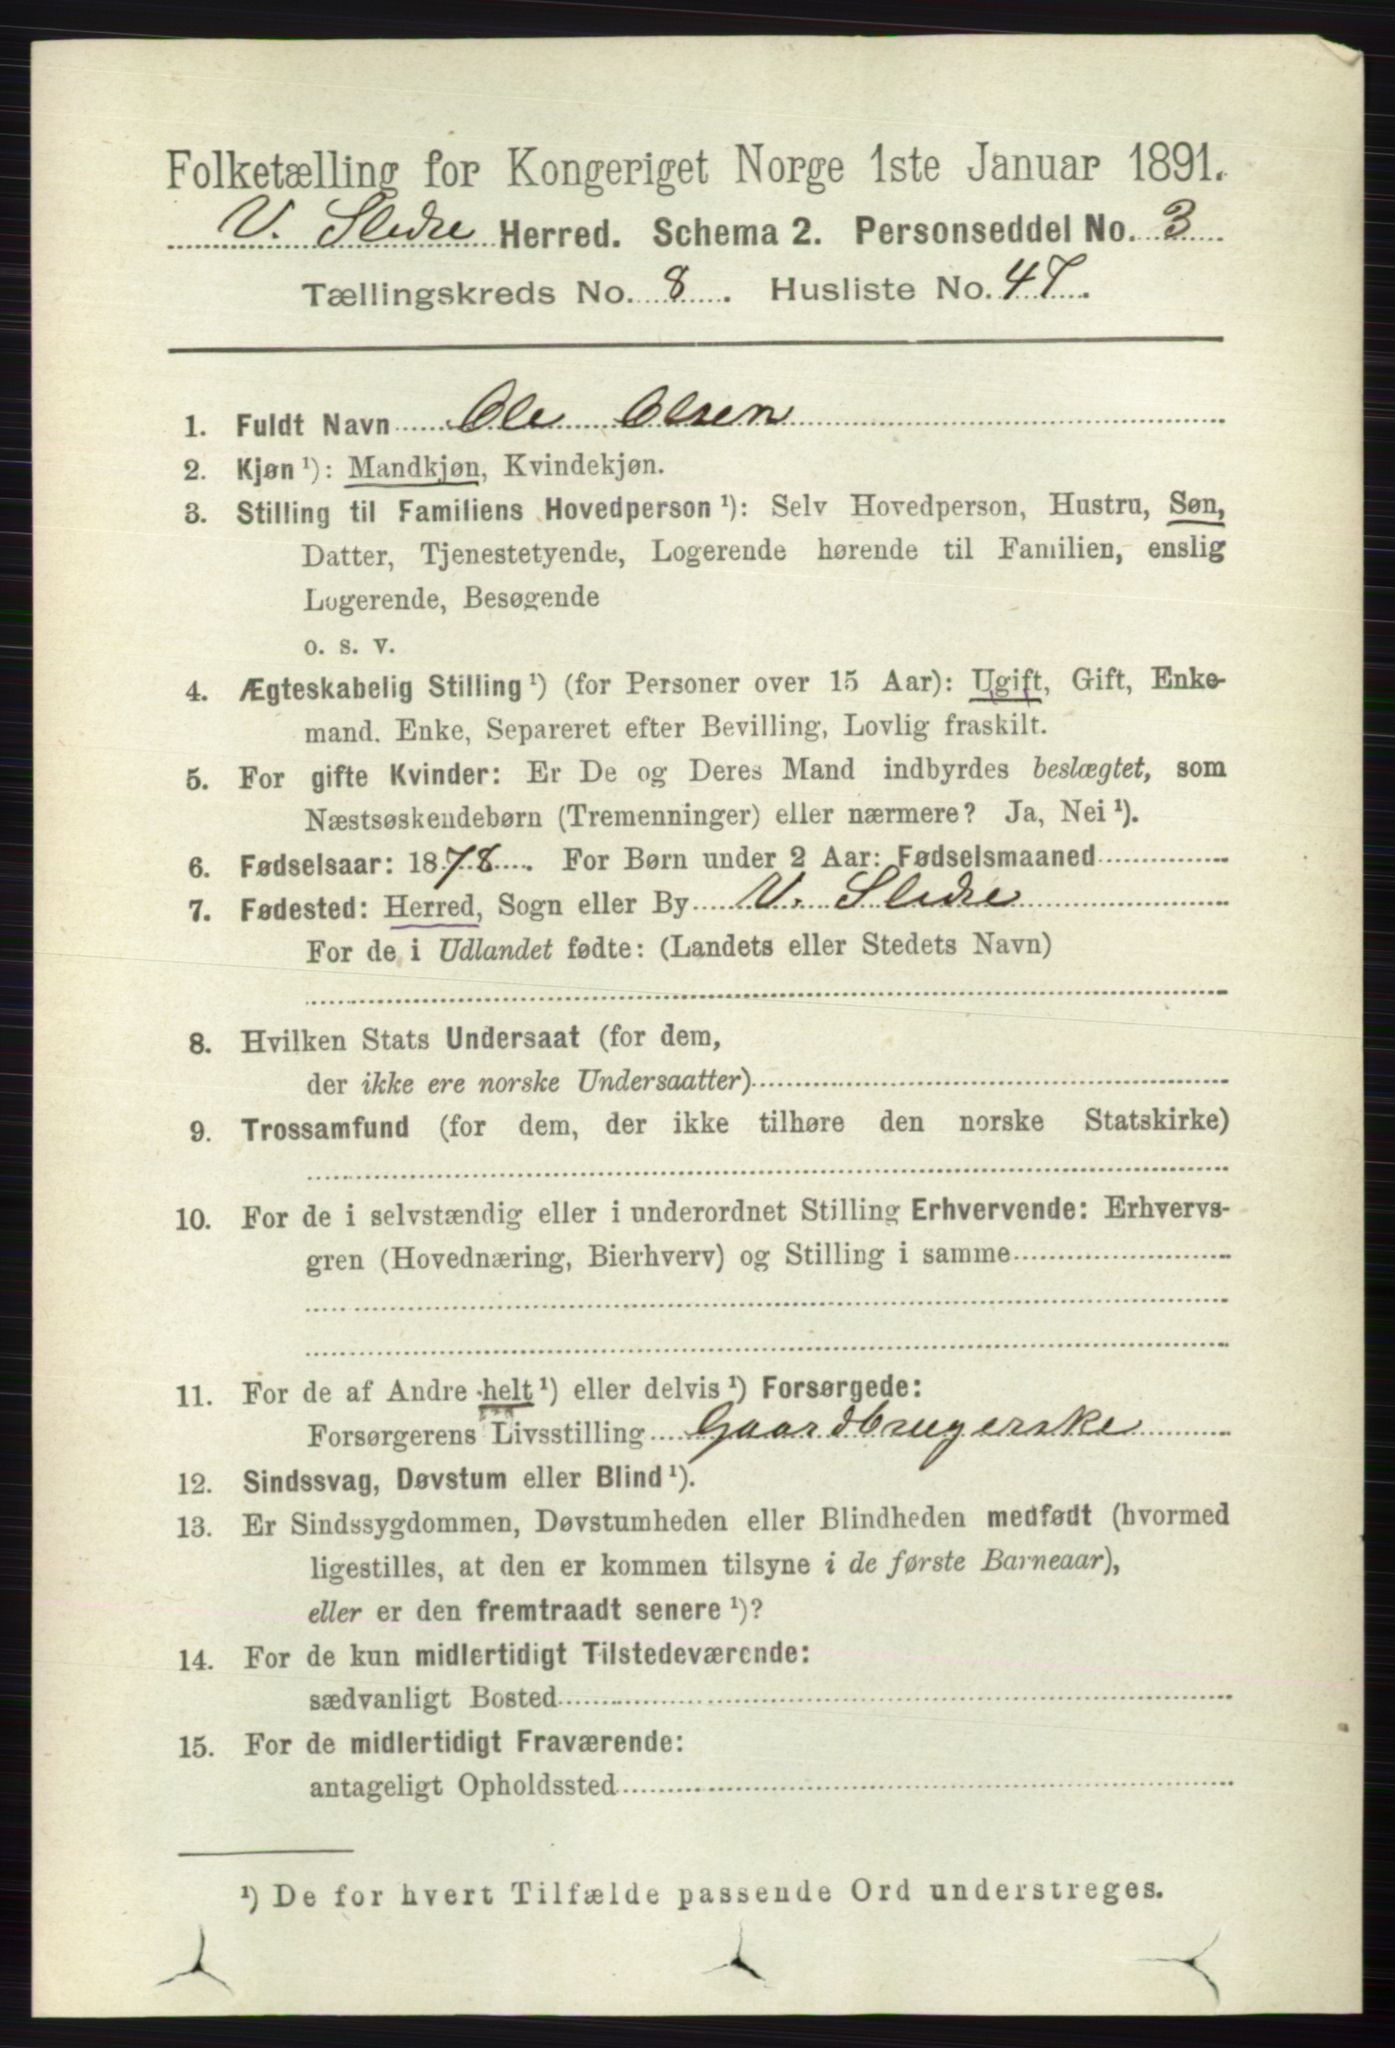 Folketælling for Kongeriget Norge 1ste Januar 1891.
V. Slidre Herred. Schema 2. Personseddel No. 3
Tællingskreds No. 8. Husliste No. 47.
1. Fuldt Navn Ole Olsen
2. Kjøn ¹): Mandkjøn, Kvindekjøn.
3. Stilling til Familiens Hovedperson ¹): Selv Hovedperson, Hustru, Søn,
Datter, Tjenestetyende, Logerende hørende til Familien, enslig
Logerende, Besøgende
o. s. v.
4. Ægteskabelig Stilling ¹) (for Personer over 15 Aar): Ugift, Gift, Enke-
mand. Enke, Separeret efter Bevilling, Lovlig fraskilt.
5. For gifte Kvinder: Er De og Deres Mand indbyrdes beslægtet, som
Næstsøskendebørn (Tremenninger) eller nærmere? Ja, Nei ¹).
6. Fødselsaar: 1878. For Børn under 2 Aar: Fødselsmaaned
7. Fødested: Herred, Sogn eller By V. Slidre
For de i Udlandet fødte: (Landets eller Stedets Navn)
8. Hvilken Stats Undersaat (for dem,
der ikke ere norske Undersaatter)
9. Trossamfund (for dem, der ikke tilhøre den norske Statskirke)
10. For de i selvstændig eller i underordnet Stilling Erhvervende: Erhvervs-
gren (Hovednæring, Bierhverv) og Stilling i samme
11. For de af Andre helt ¹) eller delvis ¹) Forsørgede:
Forsørgerens Livsstilling Gaardbrugerske
12. Sindssvag, Døvstum eller Blind ¹).
13. Er Sindssygdommen, Døvstumheden eller Blindheden medfødt (hvormed
ligestilles, at den er kommen tilsyne i de første Barneaar),
eller er den fremtraadt senere ¹)?
14. For de kun midlertidigt Tilstedeværende:
sædvanligt Bosted
15. For de midlertidigt Fraværende:
antageligt Opholdssted
¹) De for hvert Tilfælde passende Ord understreges.